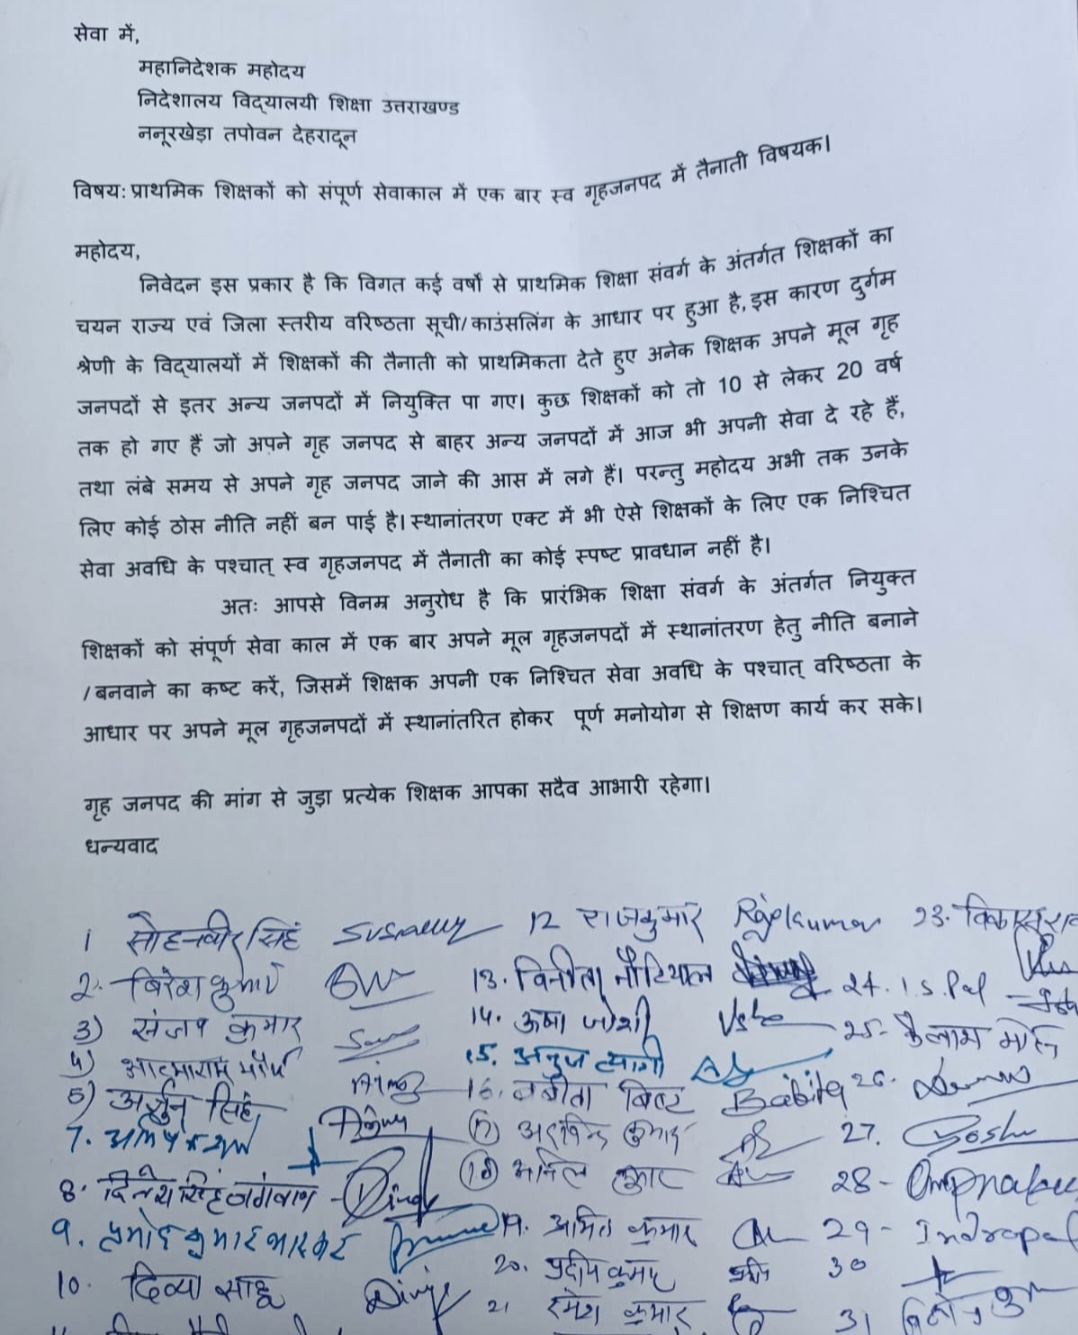 सेवा में,
महानिदेशक महोदय
निदेशालय विद्यालयी शिक्षा उत्तराखण्ड
ननूरखेड़ा तपोवन देहरादून
विषय: प्राथमिक शिक्षकों को संपूर्ण सेवाकाल में एक बार स्व गृहजनपद में तैनाती विषयक।
महोदय,
निवेदन इस प्रकार है कि विगत कई वर्षों से प्राथमिक शिक्षा संवर्ग के अंतर्गत शिक्षकों का
चयन राज्य एवं जिला स्तरीय वरिष्ठता सूची/काउंसलिंग के आधार पर हुआ है, इस कारण दुर्गम
श्रेणी के विद्यालयों में शिक्षकों की तैनाती को प्राथमिकता देते हुए अनेक शिक्षक अपने मूल गृह
जनपदों से इतर अन्य जनपदों में नियुक्ति पा गए। कुछ शिक्षकों को तो 10 से लेकर 20 वर्ष
तक हो गए हैं जो अपने गृह जनपद से बाहर अन्य जनपदों में आज भी अपनी सेवा दे रहे हैं,
तथा लंबे समय से अपने गृह जनपद जाने की आस में लगे हैं। परन्तु महोदय अभी तक उनके
लिए कोई ठोस नीति नहीं बन पाई है। स्थानांतरण एक्ट में भी ऐसे शिक्षकों के लिए एक निश्चित
सेवा अवधि के पश्चात् स्व गृहजनपद में तैनाती का कोई स्पष्ट प्रावधान नहीं है।
अतः आपसे विनम्र अनुरोध है कि प्रारंभिक शिक्षा संवर्ग के अंतर्गत नियुक्त
शिक्षकों को संपूर्ण सेवा काल में एक बार अपने मूल गृहजनपदों में स्थानांतरण हेतु नीति बनाने
/बनवाने का कष्ट करें, जिसमें शिक्षक अपनी एक निश्चित सेवा अवधि के पश्चात् वरिष्ठता के
आधार पर अपने मूल गृहजनपदों में स्थानांतरित होकर पूर्ण मनोयोग से शिक्षण कार्य कर सके।
गृह जनपद की मांग से जुड़ा प्रत्येक शिक्षक आपका सदैव आभारी रहेगा।
धन्यवाद
1 सोहनवीर सिंह
2. विरेश कुमार
3) संजय कुमार
4) आत्माराम
5) अर्जुन सिंह
7.
8. दिनेश सिंह
9. प्रमोद कुमार भास्कर
10. दिव्या साहू
12 राजकुमार Rajkumar
13. विनीता नौटियाल
14. ऊषा जोशी Usha
15. अनुज त्यागी
16. बबीता Babita
17 अरविन्द कुमार
18 अनिल कुमार
19. अमित कुमार
20. प्रदीप कुमार
21 रमेश कुमार
23.
24. I.S. Pal
25. कैलाश
26.
27.
28-
29- Indrapal
30
31